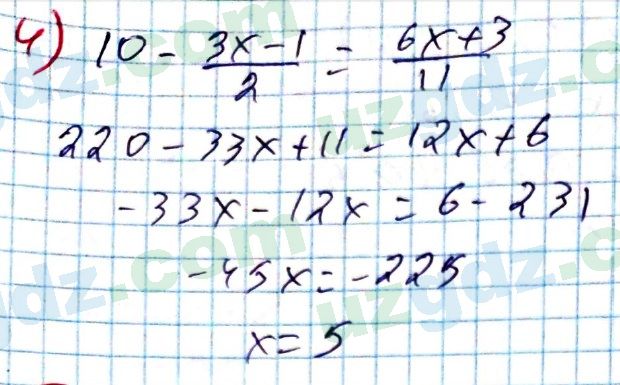 4) 10 - \frac{3x-1}{2} = \frac{6x+3}{11}
220 - 33x + 11 = 12x + 6
-33x - 12x = 6 - 231
-45x = -225
x = 5
uzgdz.com